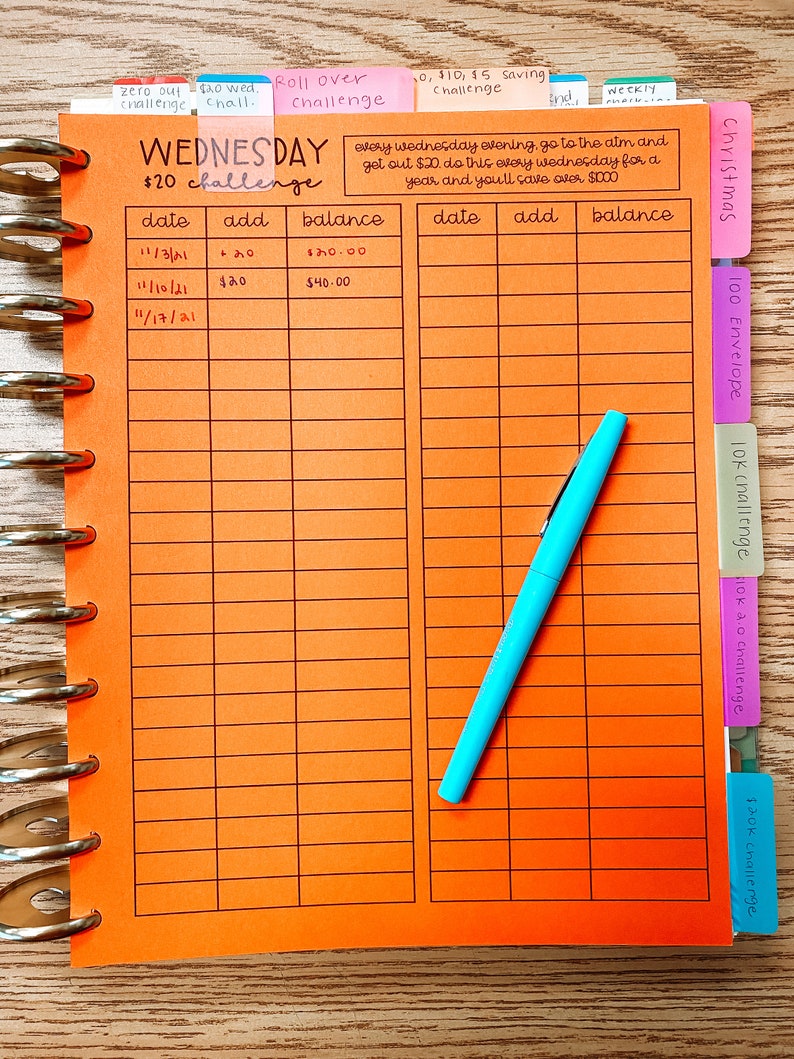 zero out
challenge
$20 Wed.
chall.
Roll over
challenge
0, $10, $5 saving
challenge
end
weekly
WEDNESDAY
$20 challenge
every wednesday evening, go to the atm and
get out $20. do this every wednesday for a
year and you'll save over $1000
date add balance date add balance
11/3/21 + 20 $20.00
11/10/21 $20 $40.00
11/17/21
Christmas
100 Envelope
10K challenge
10K 2.0 challenge
$20K challenge